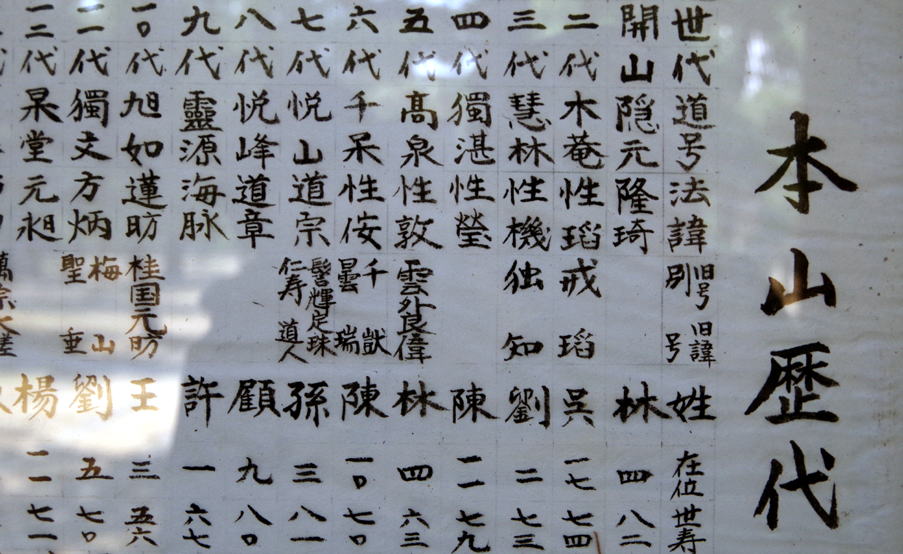 本山歴代
世代 道号 法諱 旧号 旧諱 別号 姓 在位 世寿
開山 隠元隆琦 林 四 八二
二代 木菴性瑫 戒瑫 呉 一七 七四
三代 慧林性機 独知 劉 二 七三
四代 獨湛性瑩 陳 一一 七九
五代 高泉性敦 雲外良偉 林 四 六三
六代 千呆性侒 千獃 曇瑞 陳 一〇 七〇
七代 悦山道宗 仁寿道人 孫 三 八一
八代 悦峰道章 顧 九 八〇
九代 靈源海脉 許 一 六七
一〇代 旭如蓮昉 桂国元昉 王 三 五六
一一代 獨文方炳 梅山 聖垂 劉 五 七〇
一三代 杲堂元昶 楊